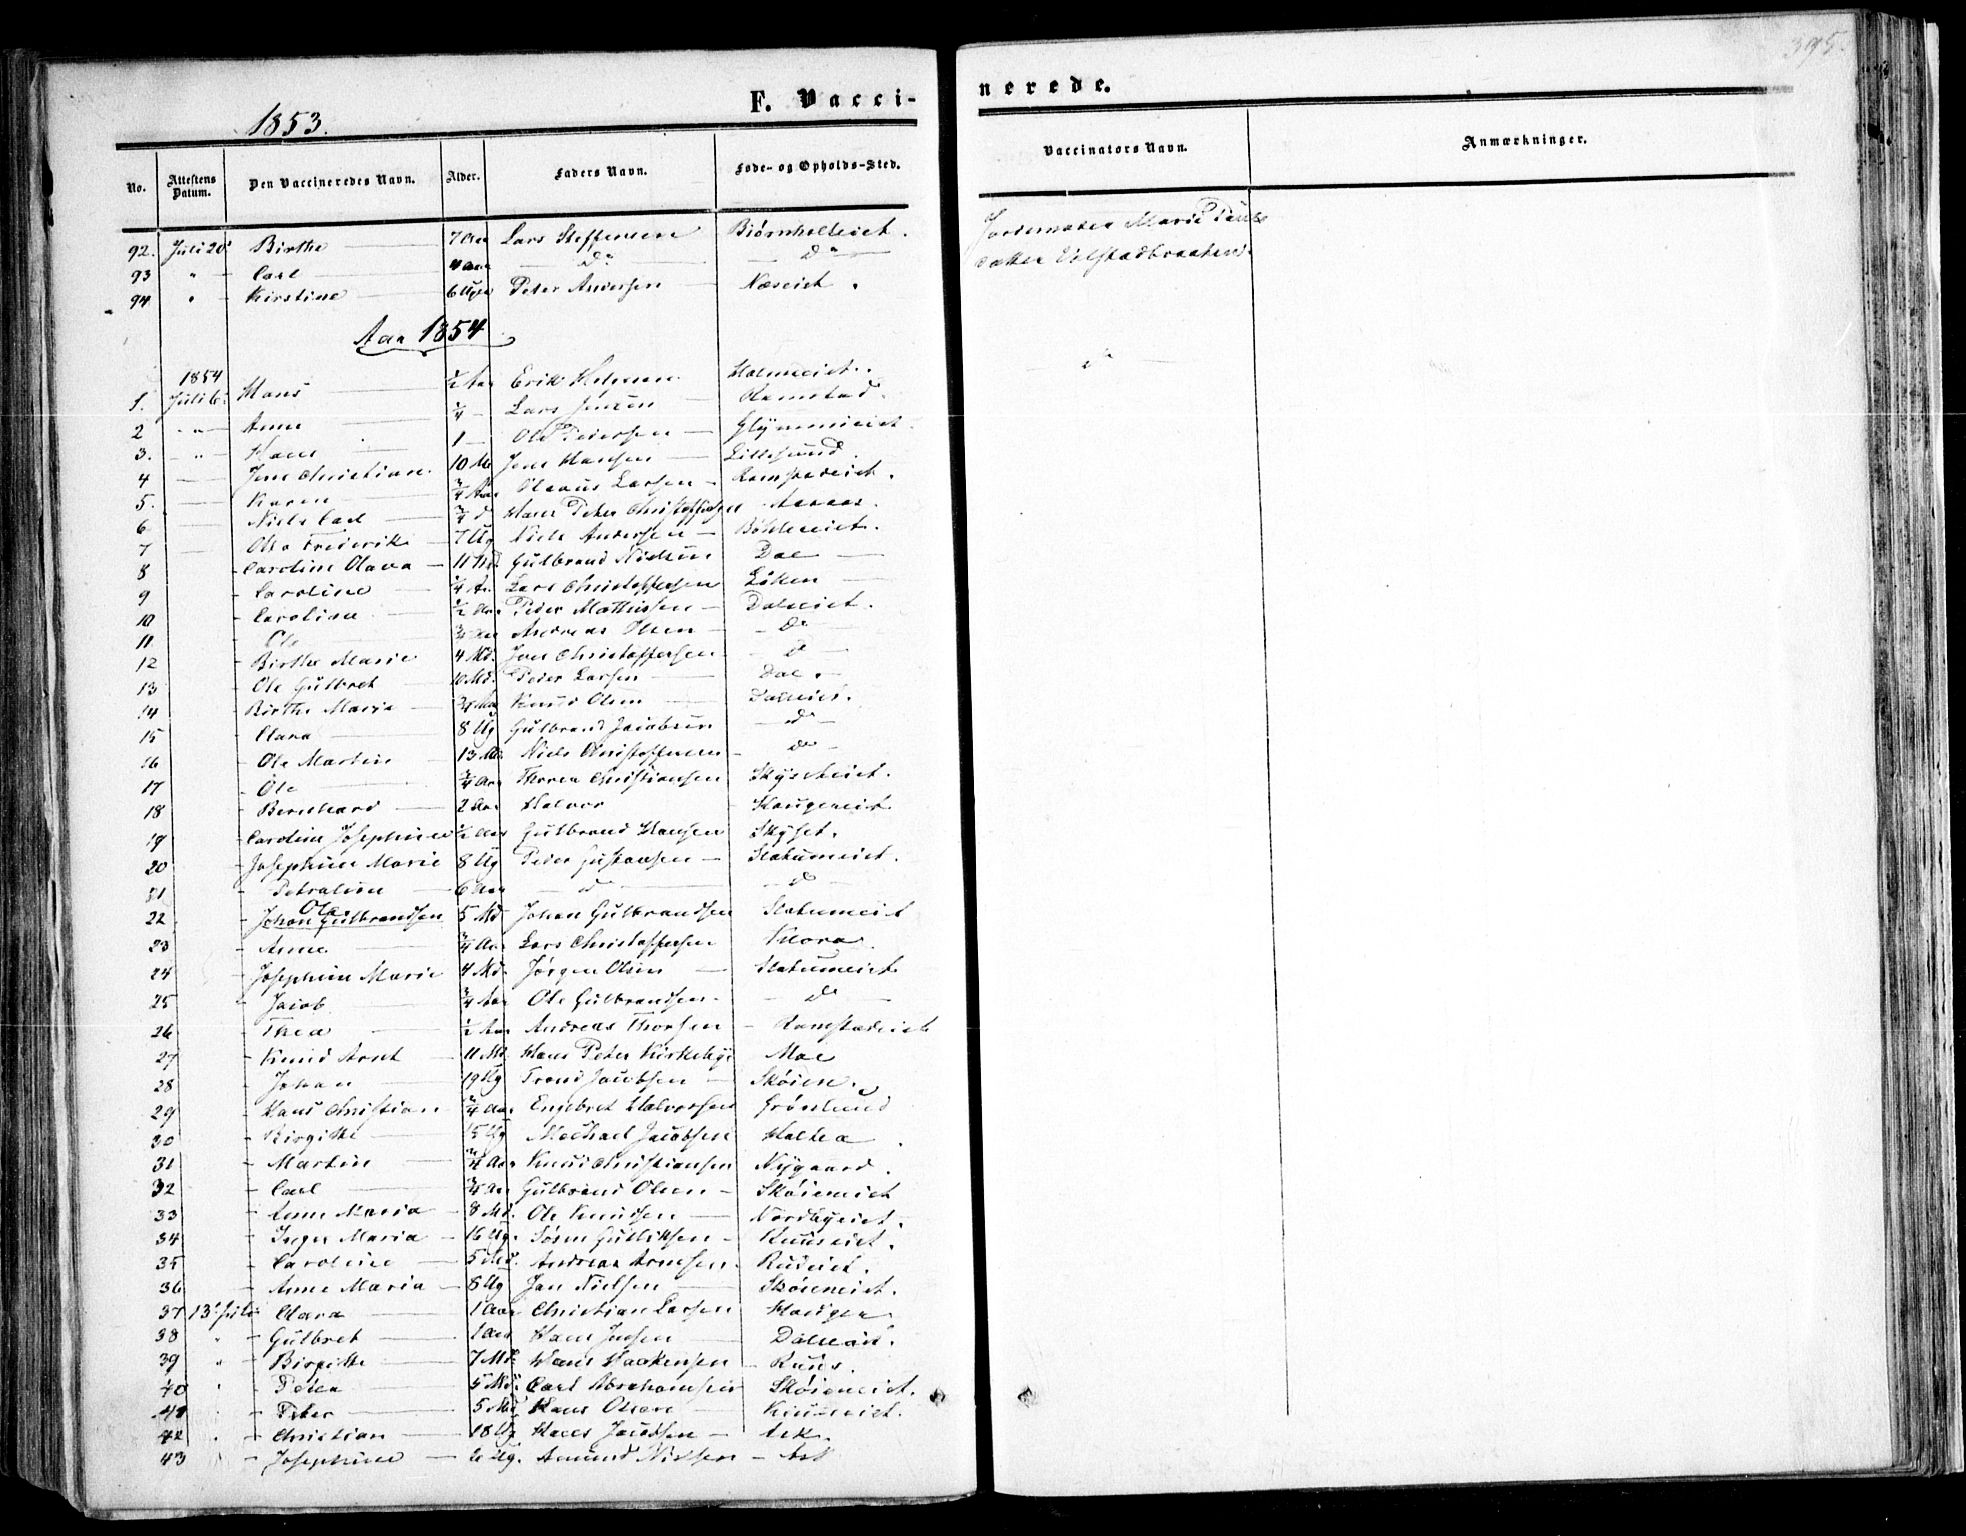 395.
1853.
F. Vacci-
nerede.
No. Attestens Datum. Den Vaccineredes Navn. Alder. Faders Navn. Føde- og Opholds-Sted. Vaccinators Navn. Anmærkninger.
92. Juli 20 Birthe 7 Aar Lars Steffensen Bjørnholteiet. Jordemoder Marie
93 " Carl 4 Aar Do Do datter
94 " Kirstine 6 Uger Peter Andersen Næseiet.
Aar 1854
1854
1. Juli 6 Hans 1/2 Aar Erik do
2 " Anne 1/4 Lars Jensen Ramstad.
3. " Hans 1 Ole Pedersen Glymmeiet.
4 Jens Christian. 10 Md Jens Hansen Lillesund.
5. Karen 3/4 Aar Olaus Larsen Ramstadeiet.
6 Niels Carl 3/4 d Hans Peter Christoffersen Aaraas.
7 Otto Frederik 7 Ug Niels Andersen Bøhlereiet.
8 Caroline Olava 11 Md Gulbrand Nielsen Dal
9 Caroline 1/4 A. Lars Christoffersen Løken
10 Caroline 1/2 Aar Peder Mathissen Daleiet.
11 Ole 3/4 Aar Andreas Olsen Do
12 Birthe Marie 4 Md. Jens Christoffersen d
13 Ole Gulbret 10 Md. Peder Larsen Dal.
14 Birthe Marie 3/4 Aar Knud Olsen Daleiet.
15 Clara 8 Ug Gulbrand Jacobsen d
16 Ole Martin 13 Md. Niels Christoffersen do
17 Ole 3/4 Aar Thorer Christiansen Skyseteiet.
18 Bernhard 2 Aar Halvor Haugeneiet
19 Caroline Josephine 1/2 Aar Gulbrand Hansen Skyset.
20 Josephine Marie 8 Ug Peder Gustavsen Slatumeiet.
21 Petraline 6 Aar d d
Ole
22 Johan Gulbrandsen 5 Md Johan Gulbrandsen Slatumeiet
23 Anne 3/4 Aar Lars Christoffersen Mora
24 Josephine Marie 4 Md. Jørgen Olsen Slatumeiet
25 Jacob 3/4 Aar Ole Gulbrandsen d
26 Thea 1/2 Aar Andreas Thorsen Ramstadeiet
27 Knud Arnt 11 Md Hans Peter Kirkebye Moe
28 Johan 19 Ug Trond Jacobsen Skøien.
29 Hans Christian 3/4 Aar Engebret Halvorsen Grønlund
30 Birgitte 15 Ug Michael Jacobsen Haltea
31 Martin 3/4 Aar Knud Christiansen Nygaard.
32 Carl 3/4 Aar Gulbrand Olsen Skøieneiet
33 Anne Maria 8 Md. Ole Knudsen Nordbyeiet.
34 Inger Maria 16 Ug. Søren Gulliksen Ruuseiet.
35 Caroline 5 Md. Andreas Arnesen Rudeiet.
36 Anne Maria 8 Ug Jan Nielsen Skøieneiet.
37 13 Juli Clara 1 Aar Christian Larsen Hauger
38 " Gulbret 1 Aar Hans Jensen Daleiet.
39 " Birgitte 7 Md. Hans Haakensen Ruus.
40 " Petea 5 Md. Carl Abrahamsen Skøieneiet.
41 " Peter 5 Md Hans Olsen
42 " Christian 18 Ug Hans Jacobsen Ask.
43 Josephine 6 Ug. Amund Nielsen Ask